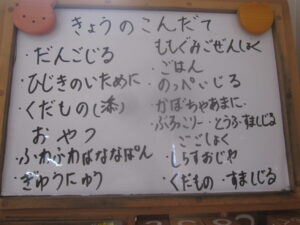 きょうのこんだて
・だんごじる
・ひじきのいために
・くだもの(添)
おやつ
・ふわふわばななぱん
・ぎゅうにゅう
ももぐみごぜんしょく
・ごはん
・のっぺいじる
・かぼちゃあまに
・ぶろっこりー・とうふすましじる
ごごしょく
・しらすおじや
・くだもの・すましじる